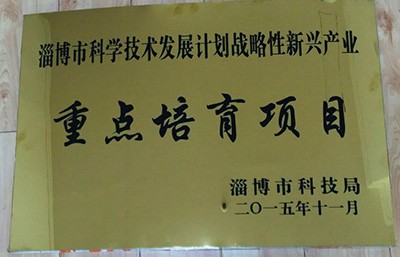 淄博市科学技术发展计划战略性新兴产业
重点培育项目
淄博市科技局
二〇一五年十一月